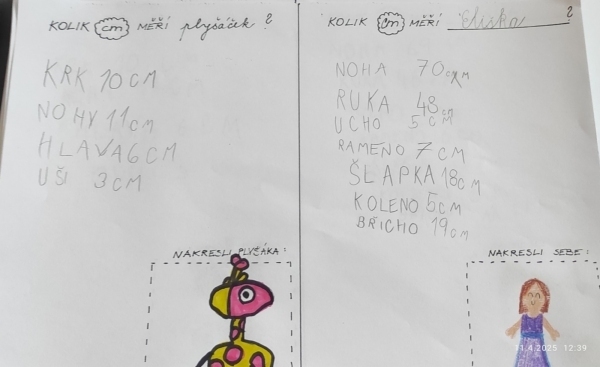 KOLIK cm MĚŘÍ plyšáček?
KRK 10CM
NOHY 11CM
HLAVA 6CM
UŠI 3CM
NAKRESLI PLYŠÁKA:
KOLIK cm MĚŘÍ Eliška?
NOHA 70CM
RUKA 48CM
UCHO 5CM
RAMENO 7CM
ŠLAPKA 18CM
KOLENO 5CM
BŘICHO 19CM
NAKRESLI SEBE:
11.4.2025 12:39